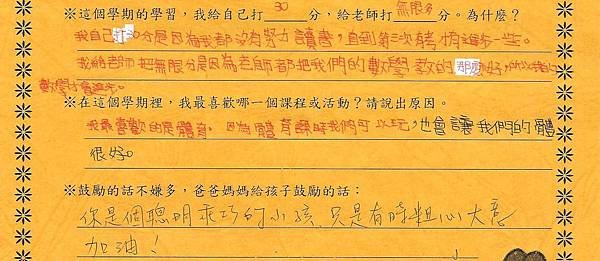 ※這個學期的學習，我給自己打30分，給老師打無限多分。為什麼？
我自己打30分是因為我都沒有努力讀書，直到第三次考才進步一些。
我給老師把無限分是因為老師都把我們的數學教的那麼好，所以我的
數學才會進步。
※在這個學期裡，我最喜歡哪一個課程或活動？請說出原因。
我最喜歡的是體育。因為體育課時我們可以玩，也會讓我們的體
很好。
※鼓勵的話不嫌多，爸爸媽媽給孩子鼓勵的話：
你是個聰明乖巧的小孩，只是有時粗心大意
加油！